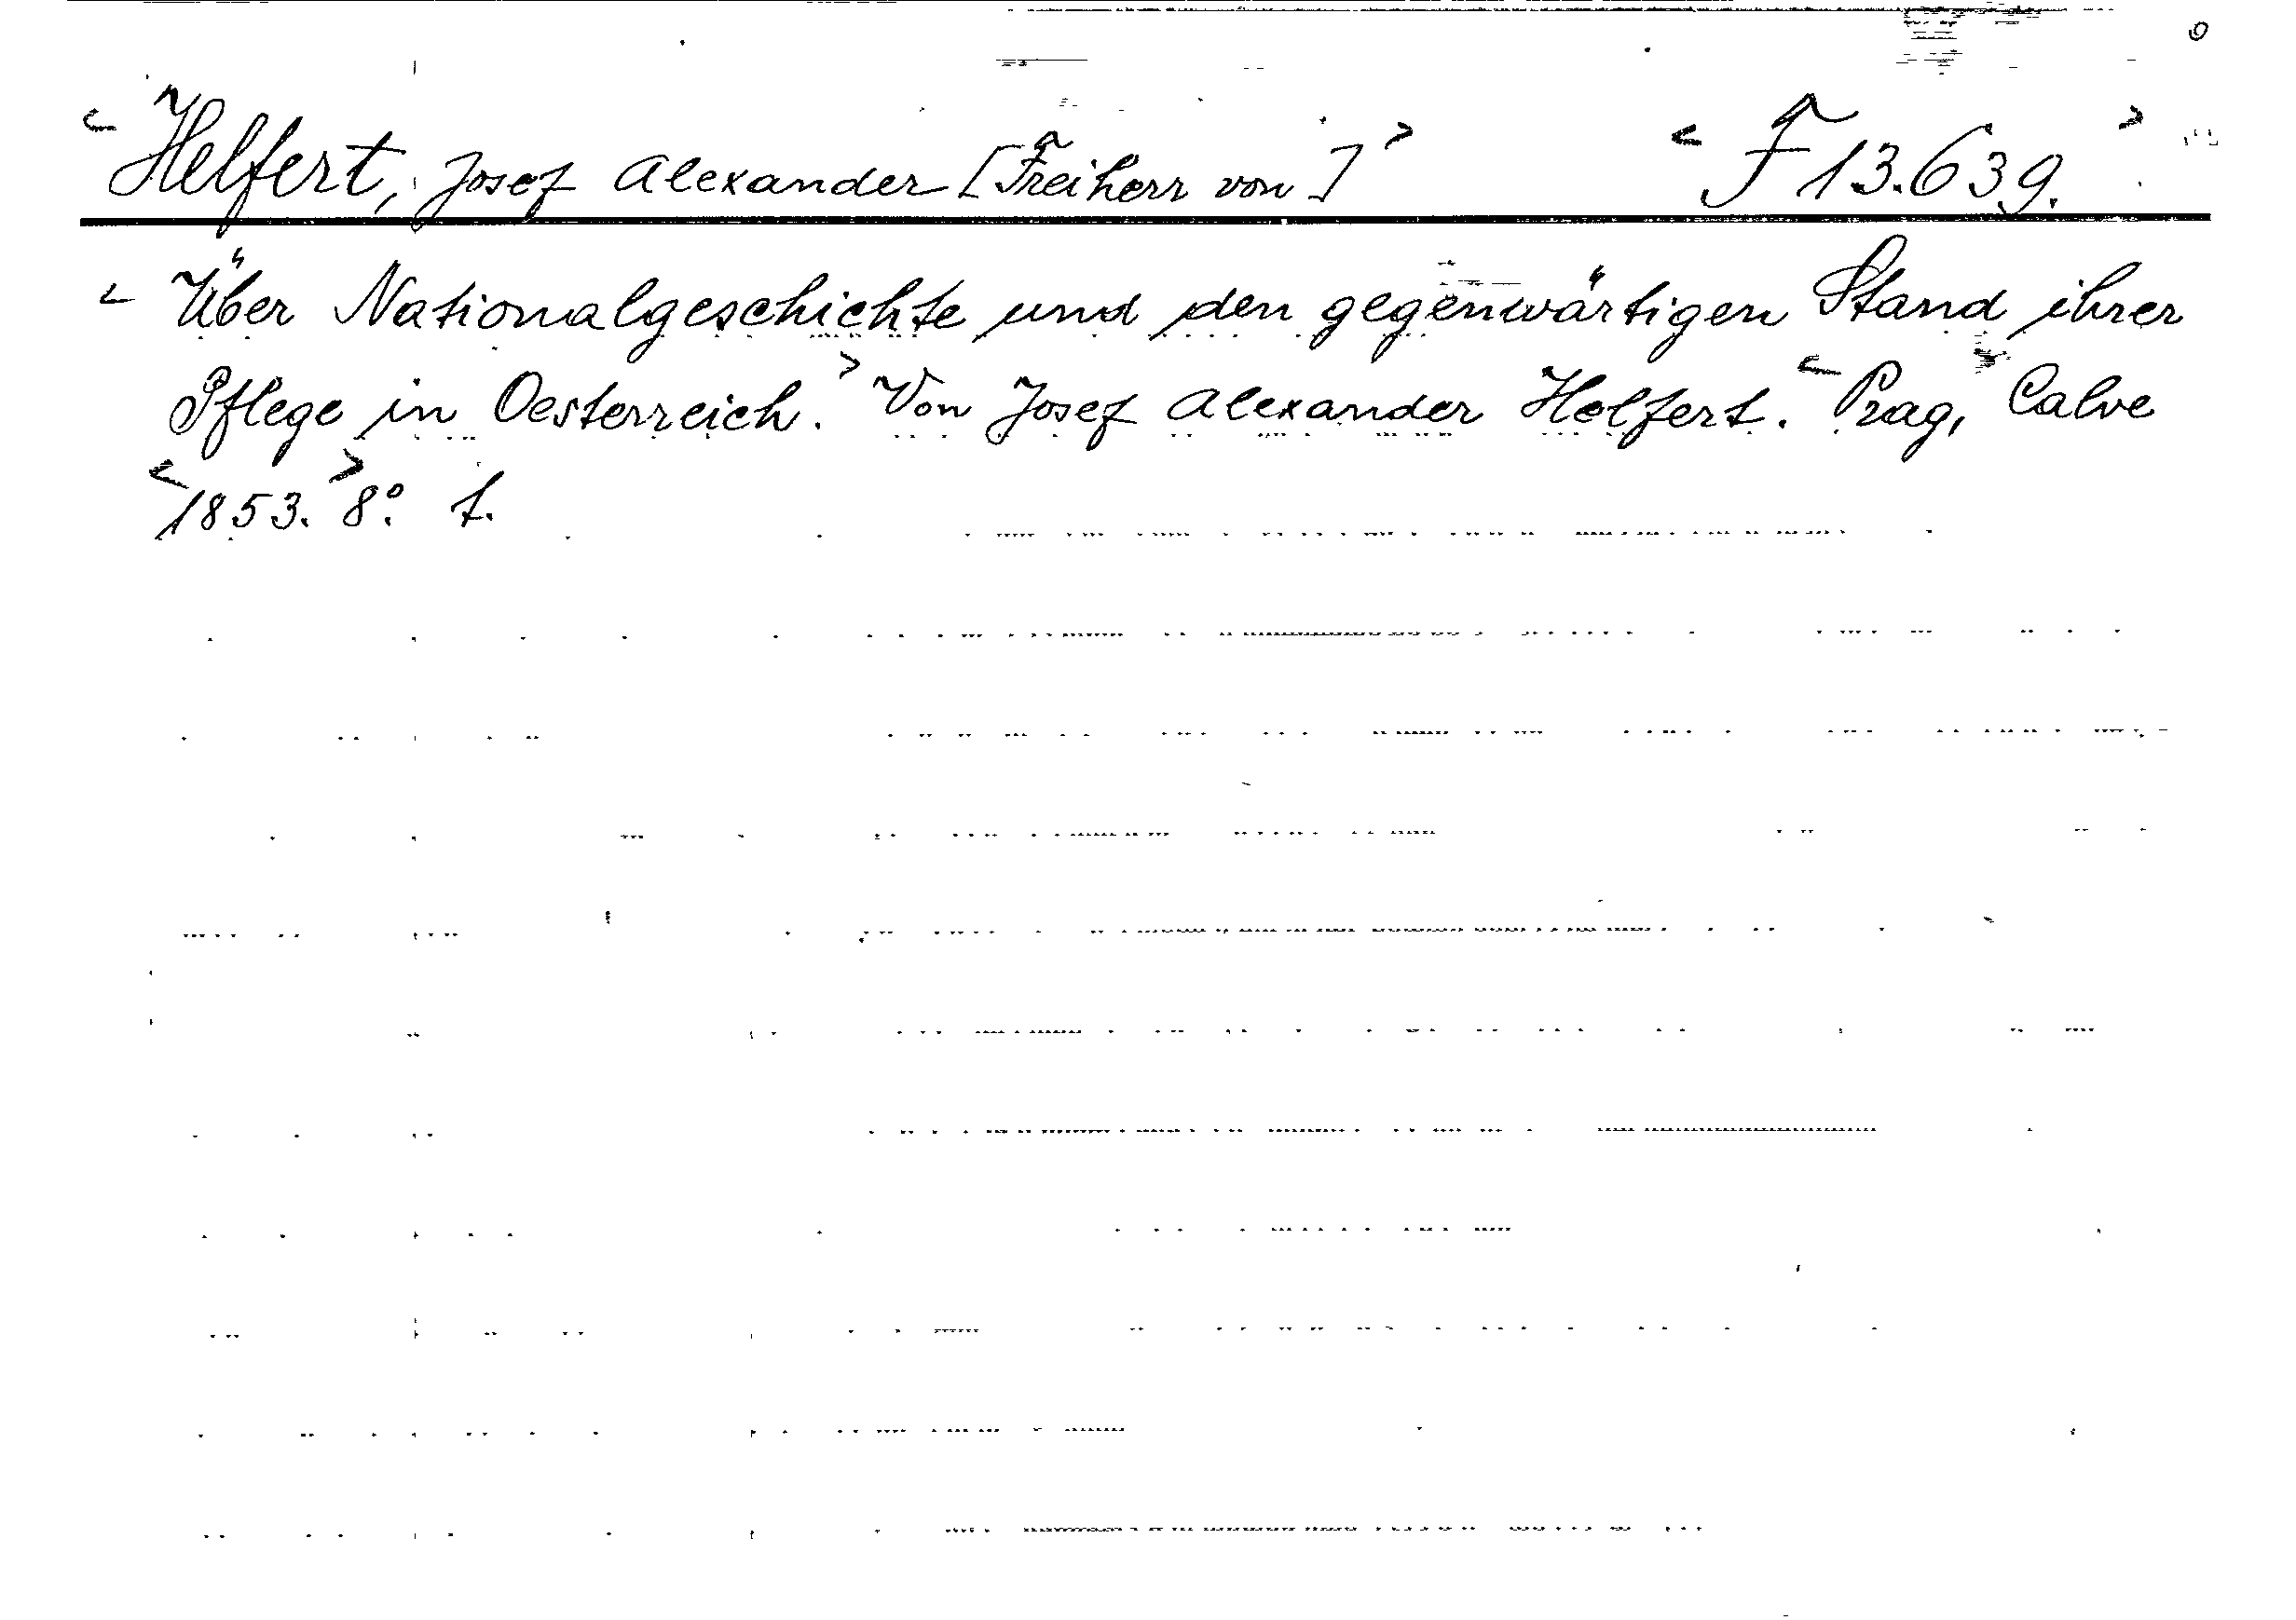 < Helfert, Josef Alexander [Freiherr von] > < F 13.639. >
< Über Nationalgeschichte und den gegenwärtigen Stand ihrer
Pflege in Oesterreich. > Von Josef Alexander Helfert. < Prag, > Calve
< 1853. > 8°. f.